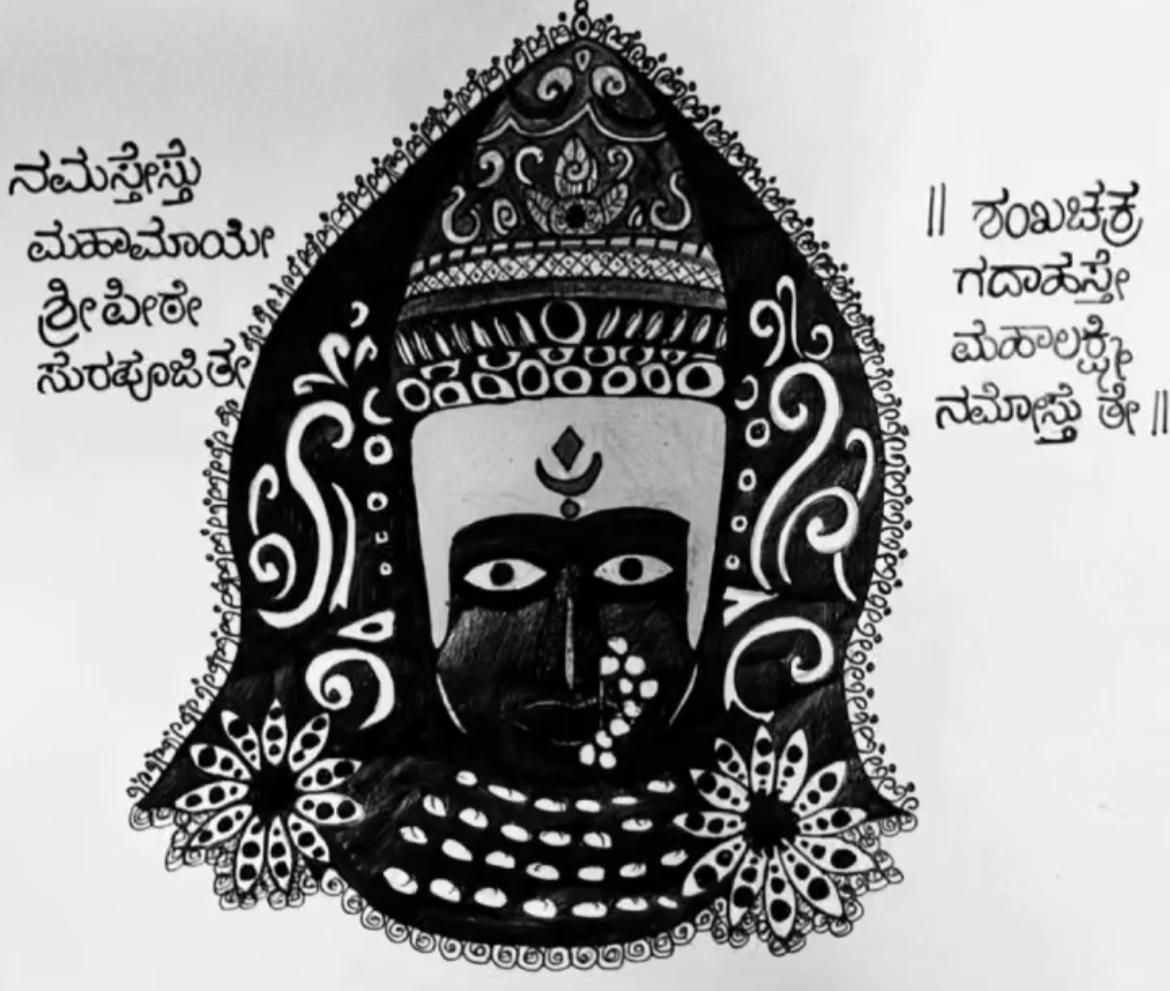 ನಮಸ್ತೇಸ್ತು
ಮಹಾಮಾಯೇ
ಶ್ರೀಪೀಠೇ
ಸುರಪೂಜಿತೇ
|| ಶಂಖಚಕ್ರ
ಗದಾಹಸ್ತೇ
ಮಹಾಲಕ್ಷ್ಮೀ
ನಮೋಸ್ತು ತೇ ||